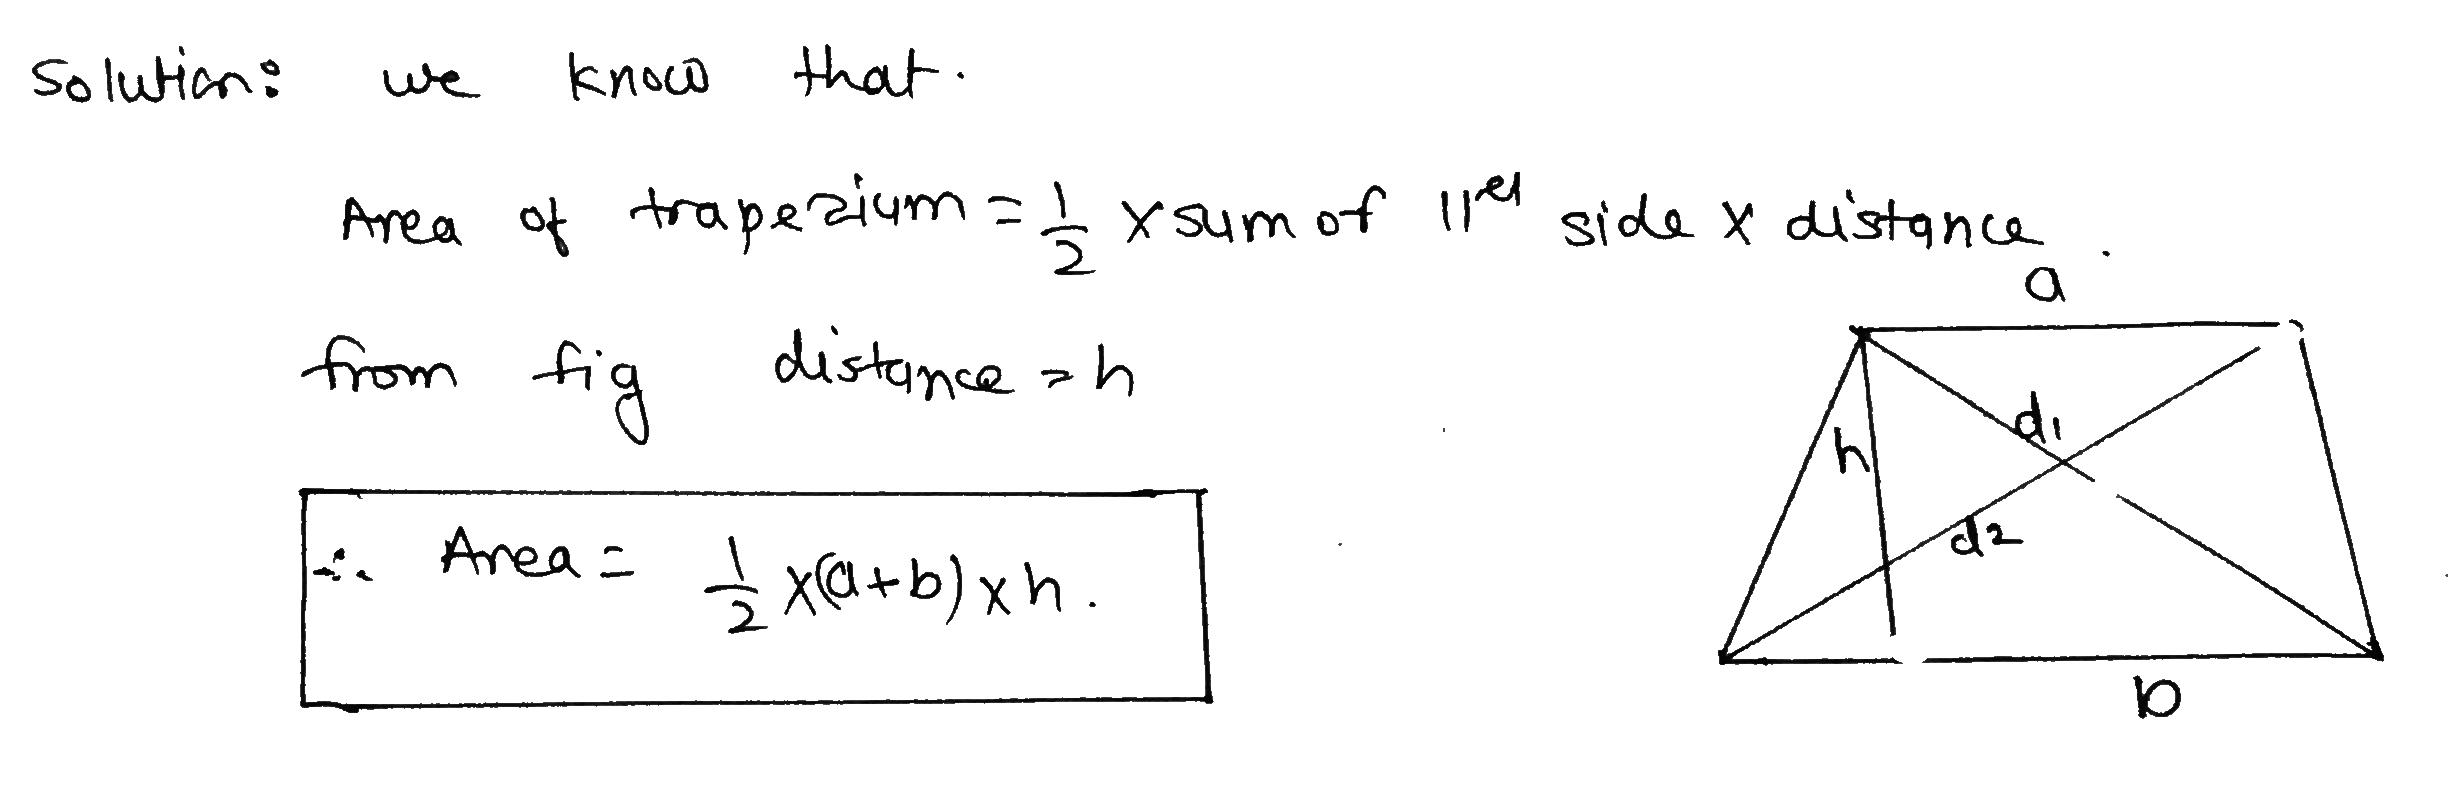 Solution: we know that.
Area of trapezium = 1/2 × sum of ||el side × distance.
from fig distance = h
∴ Area = 1/2 ×(a+b) × h.
a
h
d1
d2
b